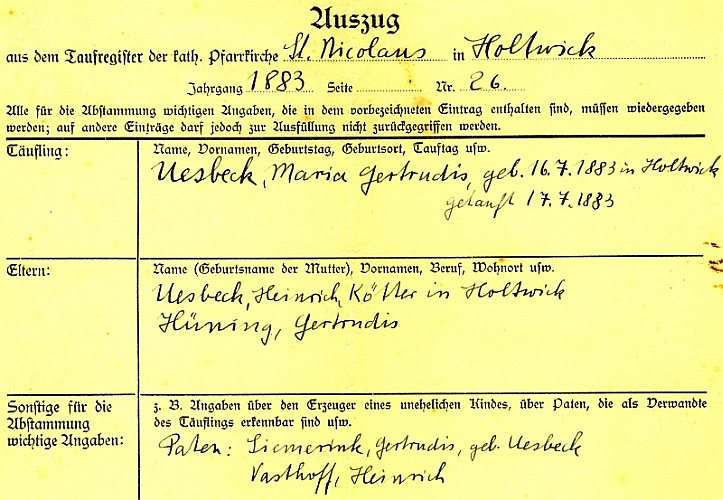 Auszug
aus dem Taufregister der kath. Pfarrkirche St. Nicolaus in Holtwick
Jahrgang 1883 Seite Nr. 26.
Alle für die Abstammung wichtigen Angaben, die in dem vorbezeichneten Eintrag enthalten sind, müssen wiedergegeben
werden; auf andere Einträge darf jedoch zur Ausfüllung nicht zurückgegriffen werden.
Täufling:
Name, Vornamen, Geburtstag, Geburtsort, Tauftag usw.
Uesbeck, Maria Gertrudis, geb. 16.7.1883 in Holtwick
getauft 17.7.1883
Eltern:
Name (Geburtsname der Mutter), Vornamen, Beruf, Wohnort usw.
Uesbeck, Heinrich, Kötter in Holtwick
Hüning, Gertrudis
Sonstige für die
Abstammung
wichtige Angaben:
z. B. Angaben über den Erzeuger eines unehelichen Kindes, über Paten, die als Verwandte
des Täuflings erkennbar sind usw.
Paten: Siemerink, Gertrudis, geb. Uesbeck
Vasthoff, Heinrich